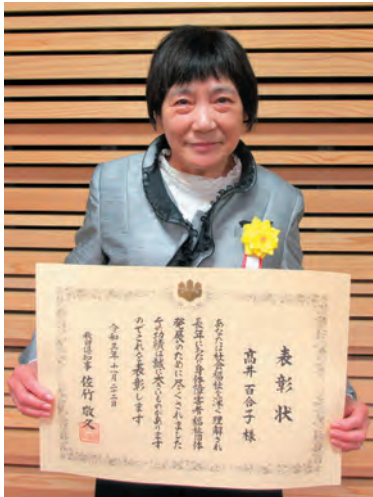 表彰状
高井 百合子 様
あなたは社会福祉を深く理解され
長年にわたり身体障害者福祉団体
発展のために尽くされました
その功績は誠に大いなるものがあります
のでこれを表彰します
令和三年十一月二十二日
秋田県知事 佐竹 敬久